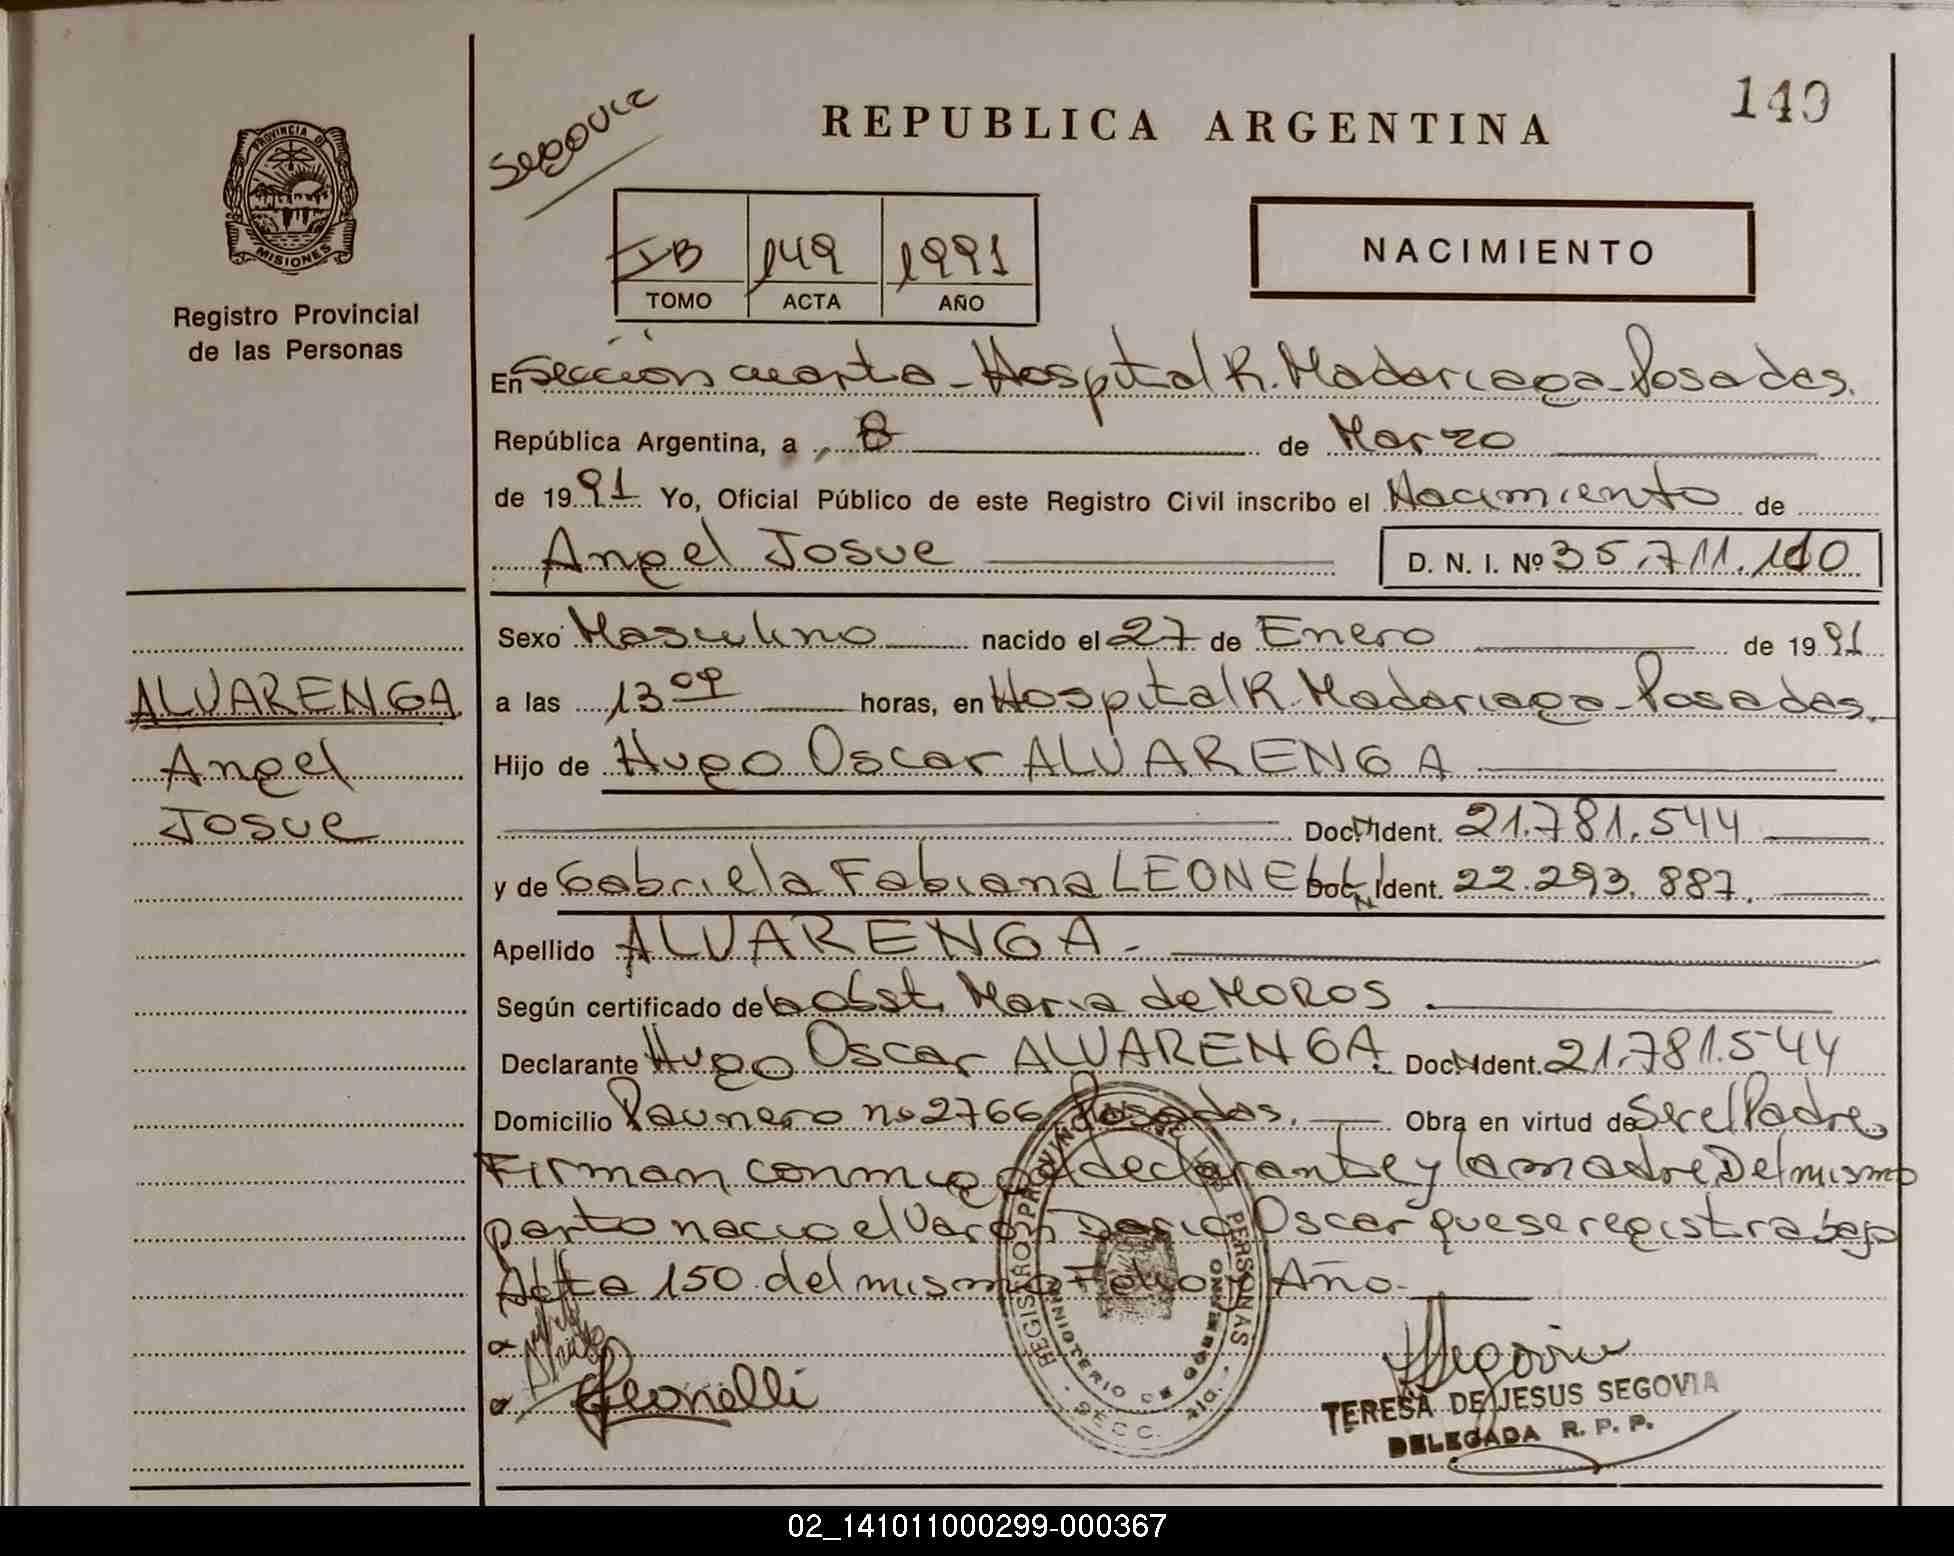 149
REPUBLICA ARGENTINA
Segovia
PROVINCIA DE
MISIONES
Registro Provincial
de las Personas
IB 149 1991
TOMO ACTA AÑO
NACIMIENTO
En Sección cuarta - Hospital R. Madariaga - Posadas.
República Argentina, a 8 de Marzo
de 1991 Yo, Oficial Público de este Registro Civil inscribo el Nacimiento de
Angel Josue D. N. I. Nº 35.711.110
Sexo Masculino nacido el 27 de Enero de 1991
a las 13 09 horas, en Hospital R. Madariaga - Posadas.
Hijo de Hugo Oscar ALVARENGA
Doc. N Ident. 21.781.544
y de Gabriela Fabiana LEONELLI Doc. N Ident. 22.293.887.
Apellido ALVARENGA -
Según certificado de la obst. Maria de MOROS.
Declarante Hugo Oscar ALVARENGA. Doc. N Ident. 21.781.544
Domicilio Paunero no 2766 Posadas. Obra en virtud de Ser el Padre
Firman conmigo el declarante y la madre Del mismo
parto nacio el Varón Dario Oscar que se registra bajo
Acta 150 del mismo Folio y Año.
ALVARENGA
Angel
Josue
Leonelli
Segovia
TERESA DE JESUS SEGOVIA
DELEGADA R. P. P.
REGISTRO PROVINCIAL DE LAS PERSONAS - DIR. -
MINISTERIO DE GOBIERNO
SECC.
02_141011000299-000367